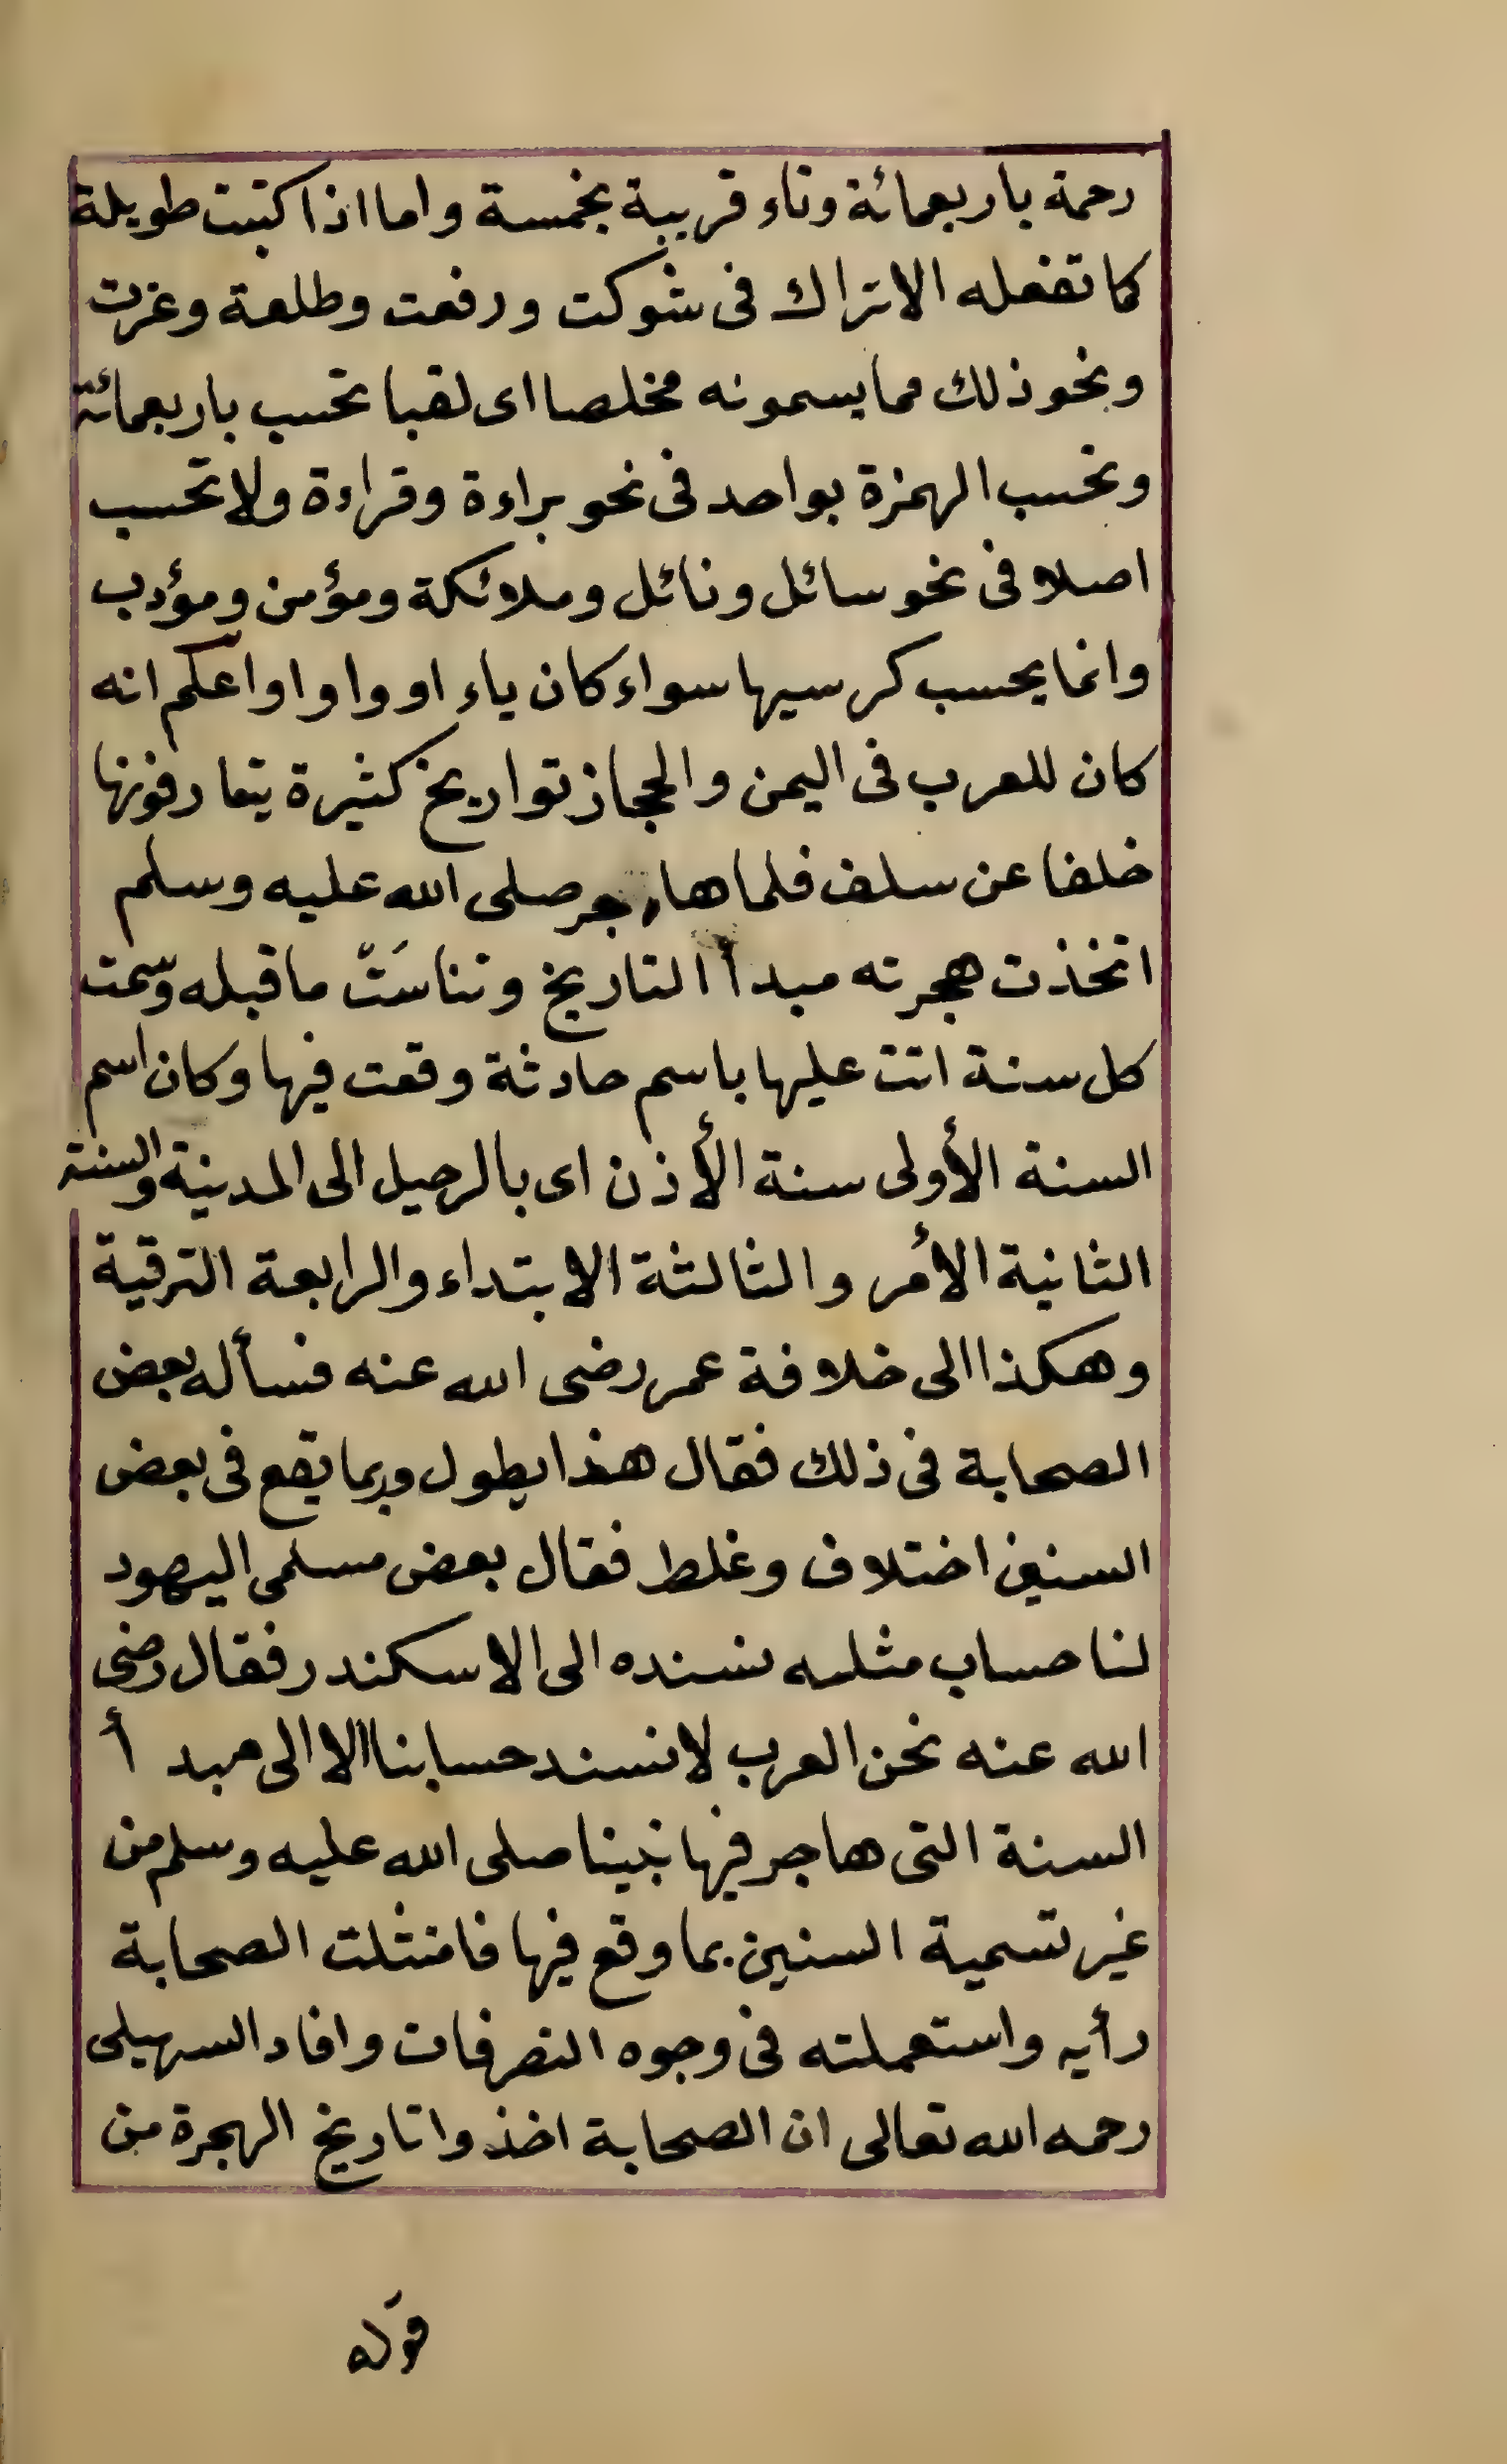 رحمة باربعمائة وتاء قريبة بخمسة واما اذا كتبت طويلة
كما تفعله الاتراك فى شوكت ورفعت وطلعة وعزت
ونحو ذلك مما يسمونه مخلصا اى لقبا تحسب باربعمائة
وتحسب الهمزة بواحد فى نحو براءة وقراءة ولا تحسب
اصلا فى نحو سائل ونائل وملائكة ومؤمن ومؤدب
وانما يحسب كرسيها سواء كان ياء او واوا واعلم انه
كان للعرب فى اليمن والحجاز تواريخ كثيرة يتعارفونها
خلفا عن سلف فلما هاجر صلى الله عليه وسلم
اتخذت هجرته مبدأ التاريخ وتناسَتْ ما قبله وسمت
كل سنة اتت عليها باسم حادثة وقعت فيها وكان اسم
السنة الأولى سنة الأذن اى بالرحيل الى المدينة والسنة
الثانية الأمر والثالثة الابتداء والرابعة الترقية
وهكذا الى خلافة عمر رضى الله عنه فسأله بعض
الصحابة فى ذلك فقال هذا يطول وربما يقع فى بعض
السنين اختلاف وغلط فقال بعض مسلمى اليهود
لنا حساب مثله نسنده الى الاسكندر فقال رضى
الله عنه نحن العرب لا نسند حسابنا الا الى مبدأ
السنة التى هاجر فيها نبينا صلى الله عليه وسلم من
غير تسمية السنين بما وقع فيها فامتثلت الصحابة
رأيه واستعملته فى وجوه التصرفات وافاد السهيلى
رحمه الله تعالى ان الصحابة اخذوا تاريخ الهجرة من
قوله